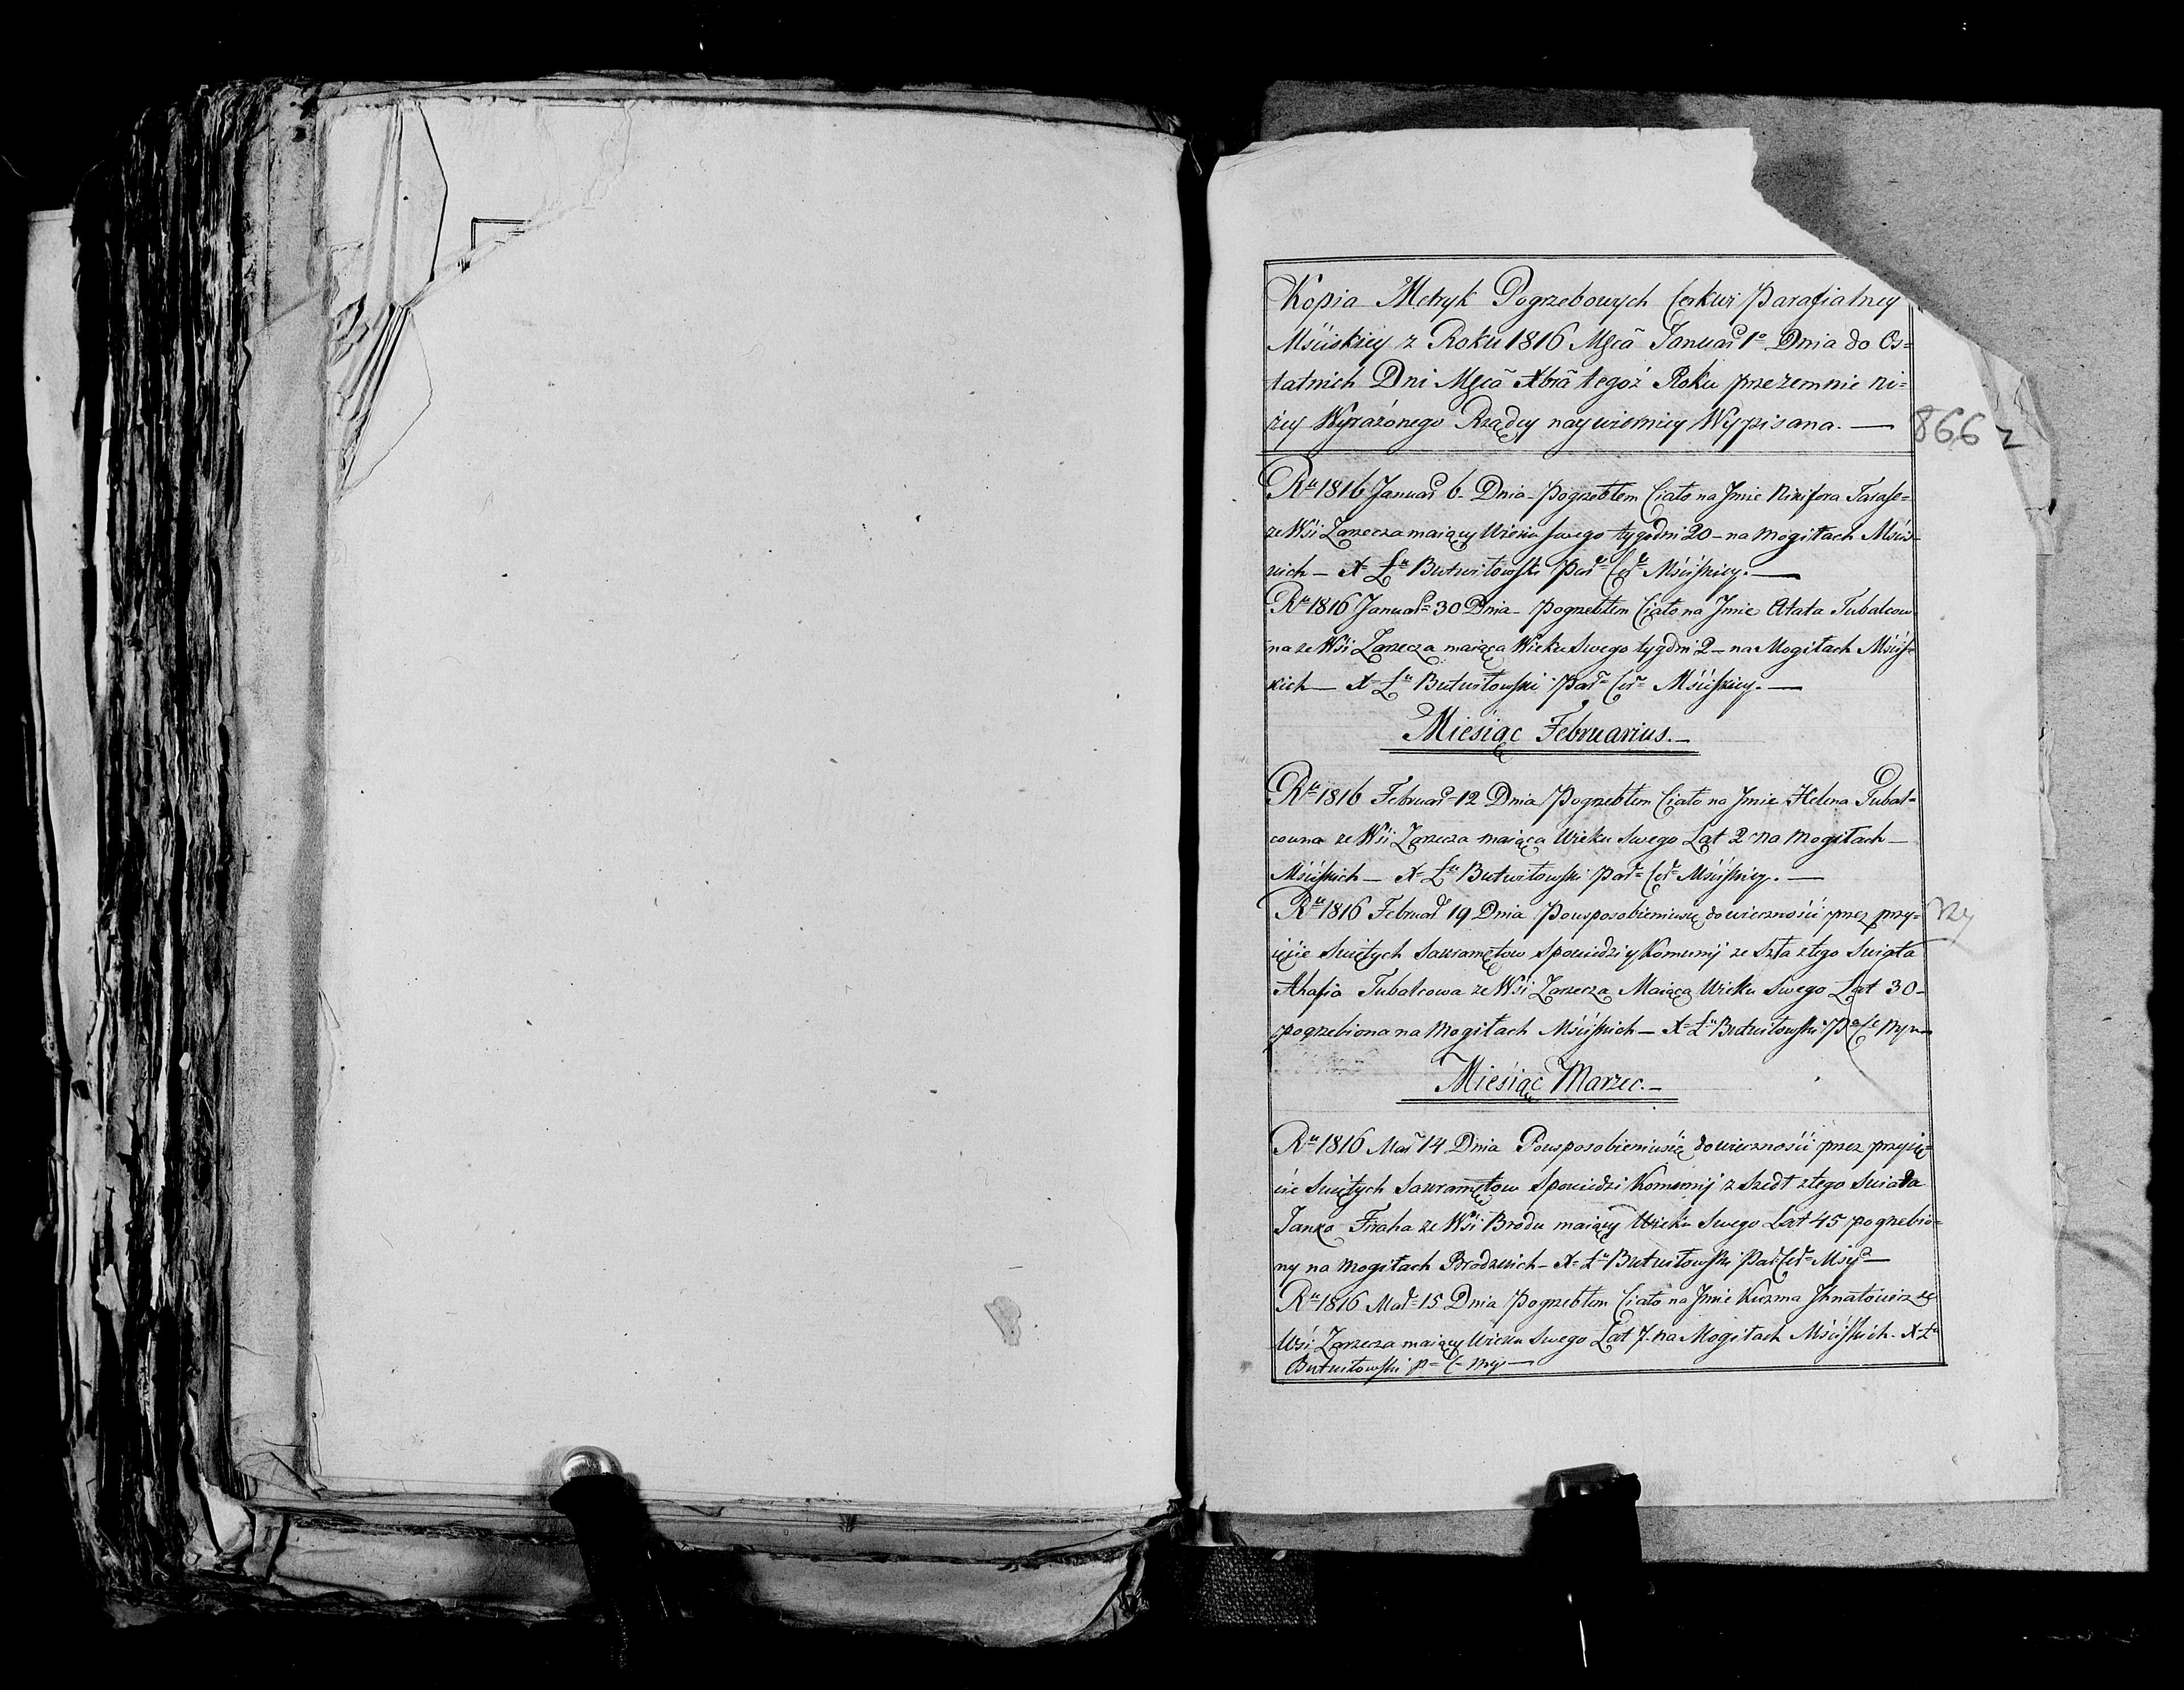 Kopia Metryk Pogrzebowych Cerkwi Parafialney
Mściskiey z Roku 1816 Mscã Januar 1º Dnia do Os=
tatnich Dni Mscã Xbrã tegoż Roku przezemnie ni=
żey Wyrażonego Rządcy naywierniey Wypisana. —
866
Rᵘ 1816 Januar 6 - Dnia - Pogrzebłem Ciało na Jmie Nikifora Tarase=
ze Wśi Zarzecza maiący Wieku swego tygodni 20 - na Mogiłach Mścis-
kich — X Łᵘ Butwiłowski Parᵒ Cerᵏ Mściskiey. —
Rᵘ 1816 Januar 30 Dnia - Pogrzebłem Ciało na Jmie Ahata Tubalcow
na ze Wśi Zarzecza maiąca Wieku Swego tygdni 2 - na Mogiłach Mścis=
kich — X Łᵘ Butwiłowski Par Cer Mściskiey. —
Miesiąc Februarius. —
Rᵘ 1816 Februar 12 Dnia Pogrzebłem Ciało na Jmie Helena Tubal=
cowna ze Wśi Zarzecza maiąca Wieku Swego Lat 2 na Mogiłach —
Mściskich — X Łᵘ Butwiłowski Par Cer Mściskiey. —
Rᵘ 1816 Februar 19 Dnia Pousposobieniusię do wieczności przez przy=
ięcie Swiętych Sakramętow Spowiedzi y Komunij ze Szła ztego Swiata
Ahafia Tubalcowa ze Wśi Zarzecza Maiąca Wieku Swego Lat 30 -
pogrzebiona na Mogiłach Mściskich — X Łᵘ Butwiłowski P C
Miesiąc Marzec. —
Rᵘ 1816 Mar 14 Dnia Pousposobieniusię do wieczności przez przyię=
cie Swiętych Sakramętow Spowiedzi Komunij z Szedł ztego Swiata
Janko Fraha ze Wśi Brodu maiący Wieku Swego Lat 45 pogrzebio=
ny na Mogiłach Brodzkich - X Łᵘ Butwiłowski Par Cer Msey —
Rᵘ 1816 Mar 15 Dnia Pogrzebłem Ciało na Jmie Kuzma Jhnatowicz ze
Wśi Zarzecza maiący Wieku Swego Lat 7 - na Mogiłach Mściskich - X Łᵘ
Butwiłowski P C Mey —